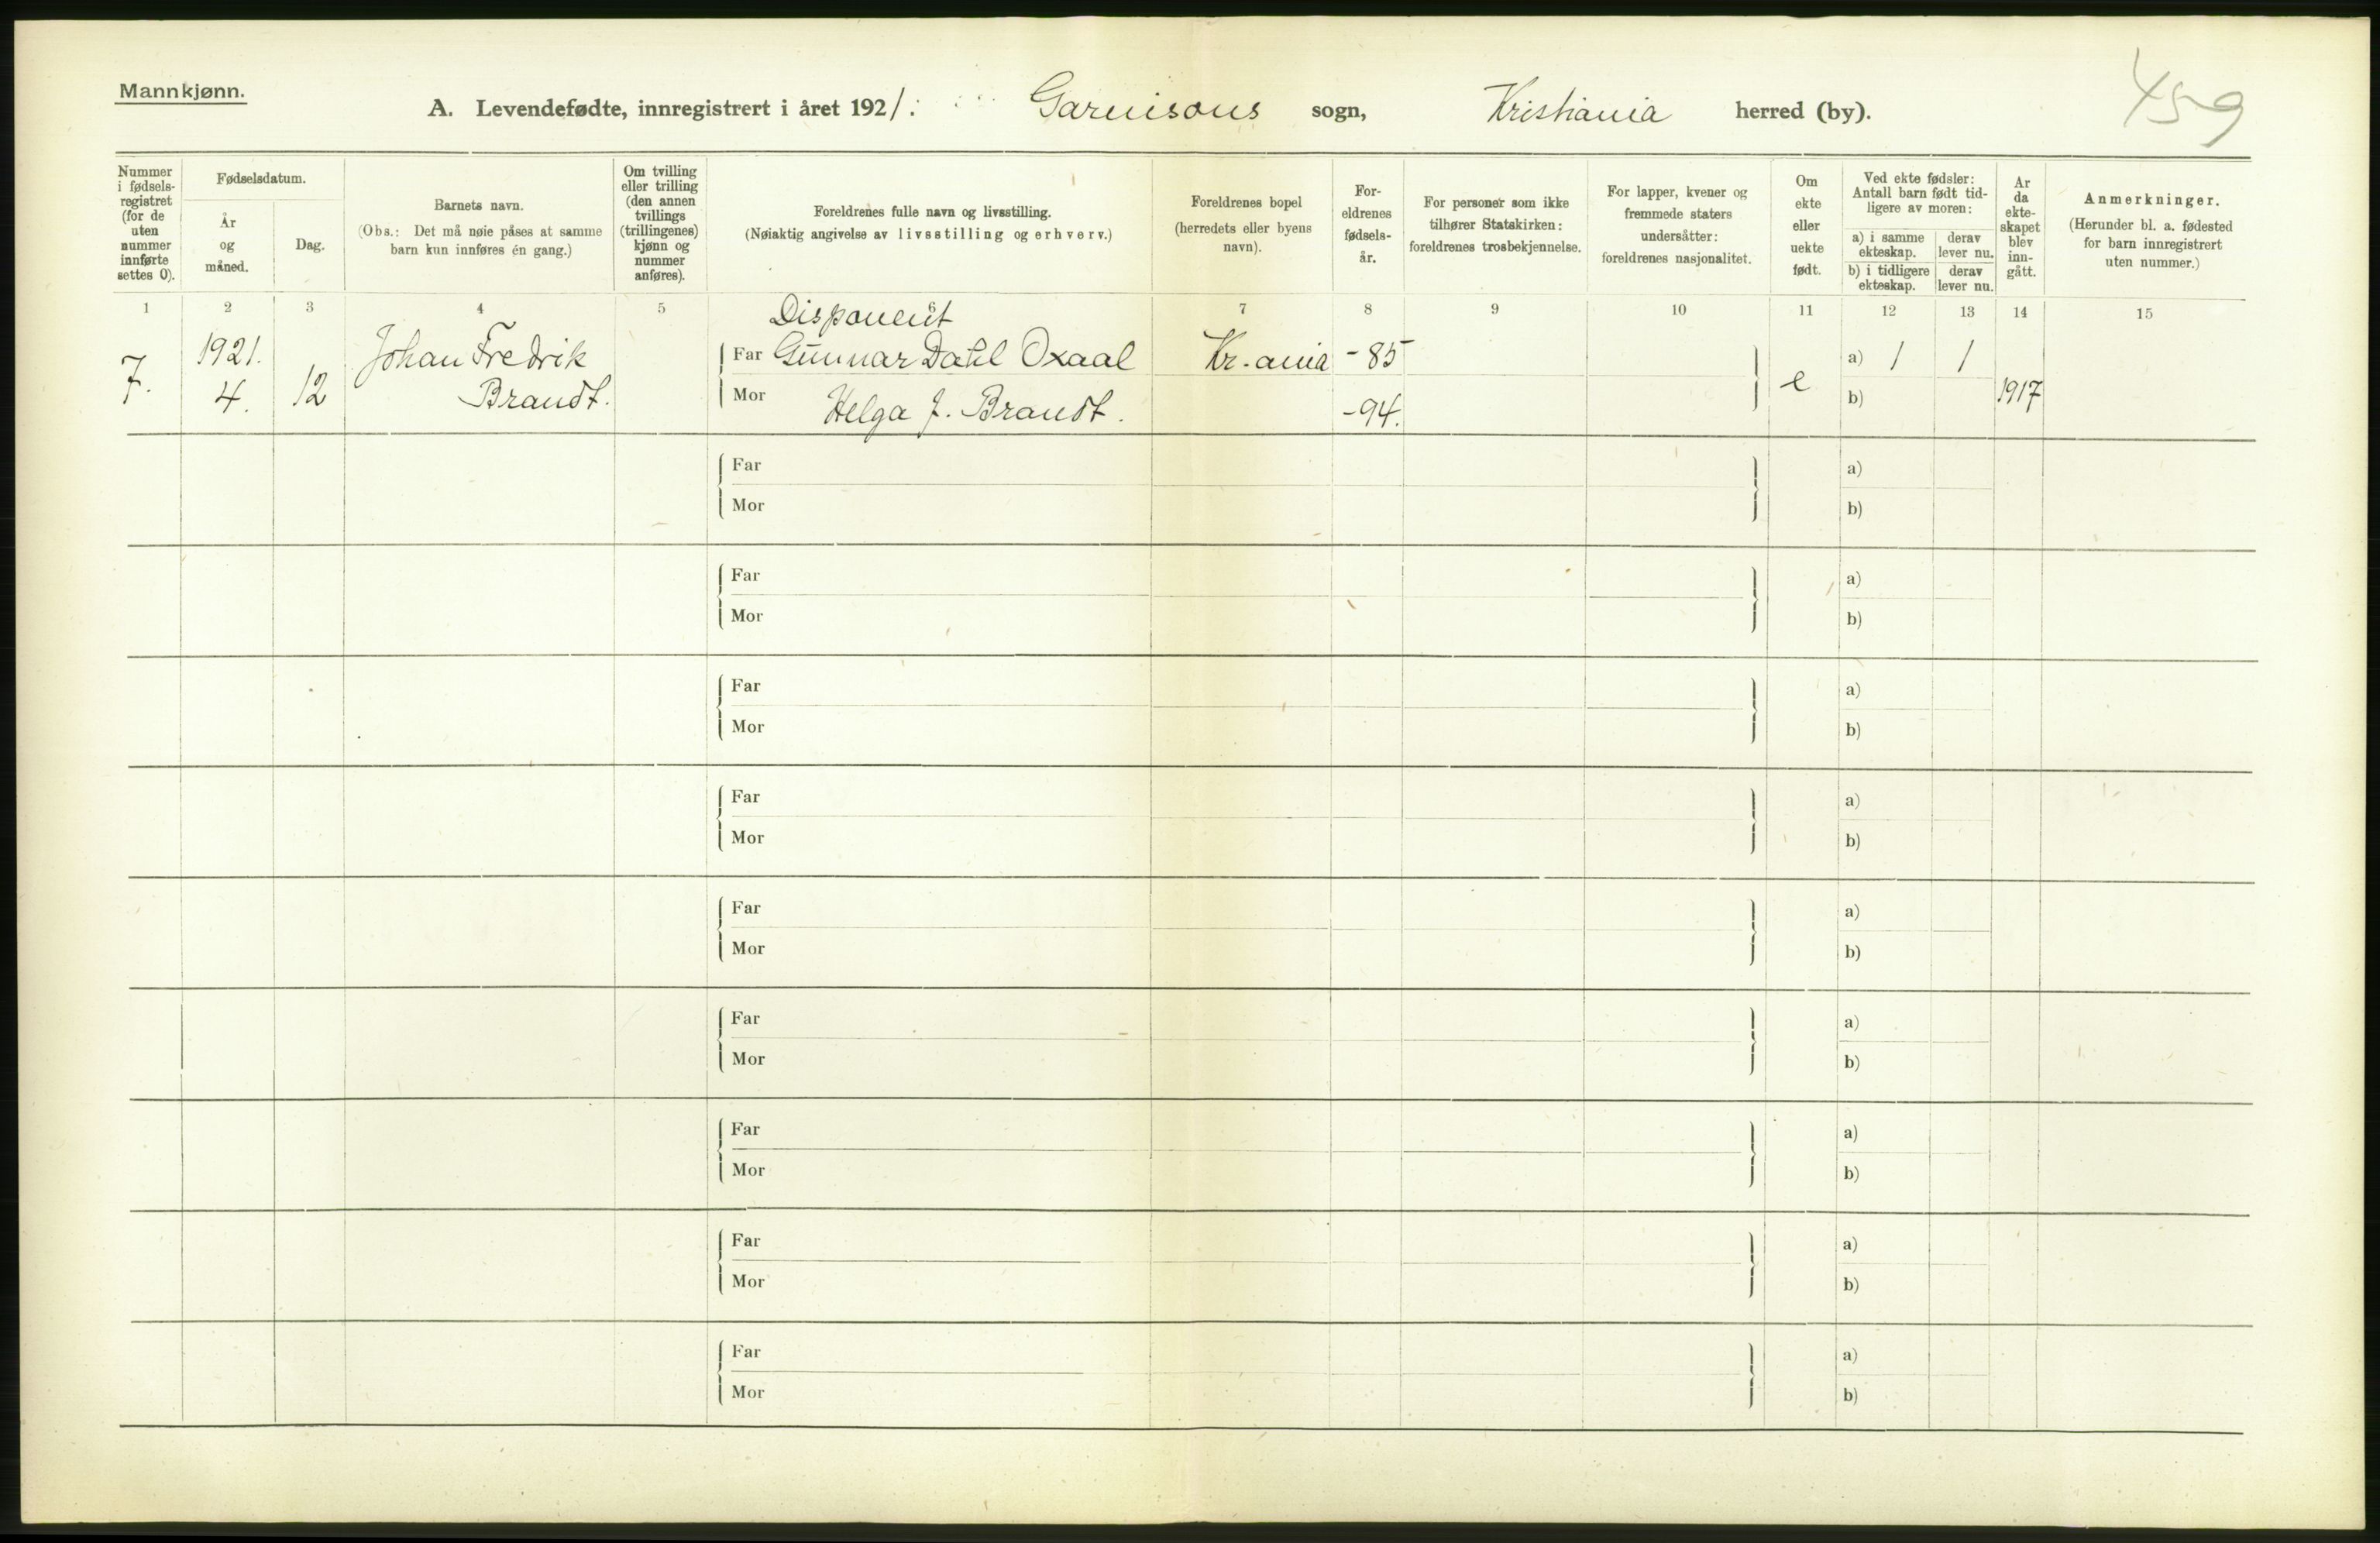 Mannkjønn.
459
A. Levendefødte, innregistrert i året 1921. Garnisons sogn, Kristiania herred (by).
Nummer i fødselsregistret (for de uten nummer innførte settes 0).
Fødselsdatum.
År og måned.
Dag.
Barnets navn.
(Obs.: Det må nøie påses at samme barn kun innføres én gang.)
Om tvilling eller trilling (den annen tvillings (trillingenes) kjønn og nummer anføres).
Foreldrenes fulle navn og livsstilling.
(Nøiaktig angivelse av livsstilling og erhverv.)
Foreldrenes bopel
(herredets eller byens navn).
Foreldrenes fødselsår.
For personer som ikke tilhører Statskirken: foreldrenes trosbekjennelse.
For lapper, kvener og fremmede staters undersåtter: foreldrenes nasjonalitet.
Om ekte eller uekte født.
Ved ekte fødsler:
Antall barn født tidligere av moren:
a) i samme ekteskap.
derav lever nu.
b) i tidligere ekteskap.
derav lever nu.
År da ekteskapet blev inngått.
Anmerkninger.
(Herunder bl. a. fødested for barn innregistrert uten nummer.)
1 2 3 4 5 6 7 8 9 10 11 12 13 14 15
7. 1921. 4. 12 Johan Fredrik Brandt.
Disponent
Far Gunnar Dahl Oxaal Kr.ania -85 e a) 1 1 1917
Mor Helga J. Brandt. -94. b)
Far a)
Mor b)
Far a)
Mor b)
Far a)
Mor b)
Far a)
Mor b)
Far a)
Mor b)
Far a)
Mor b)
Far a)
Mor b)
Far a)
Mor b)
Far a)
Mor b)